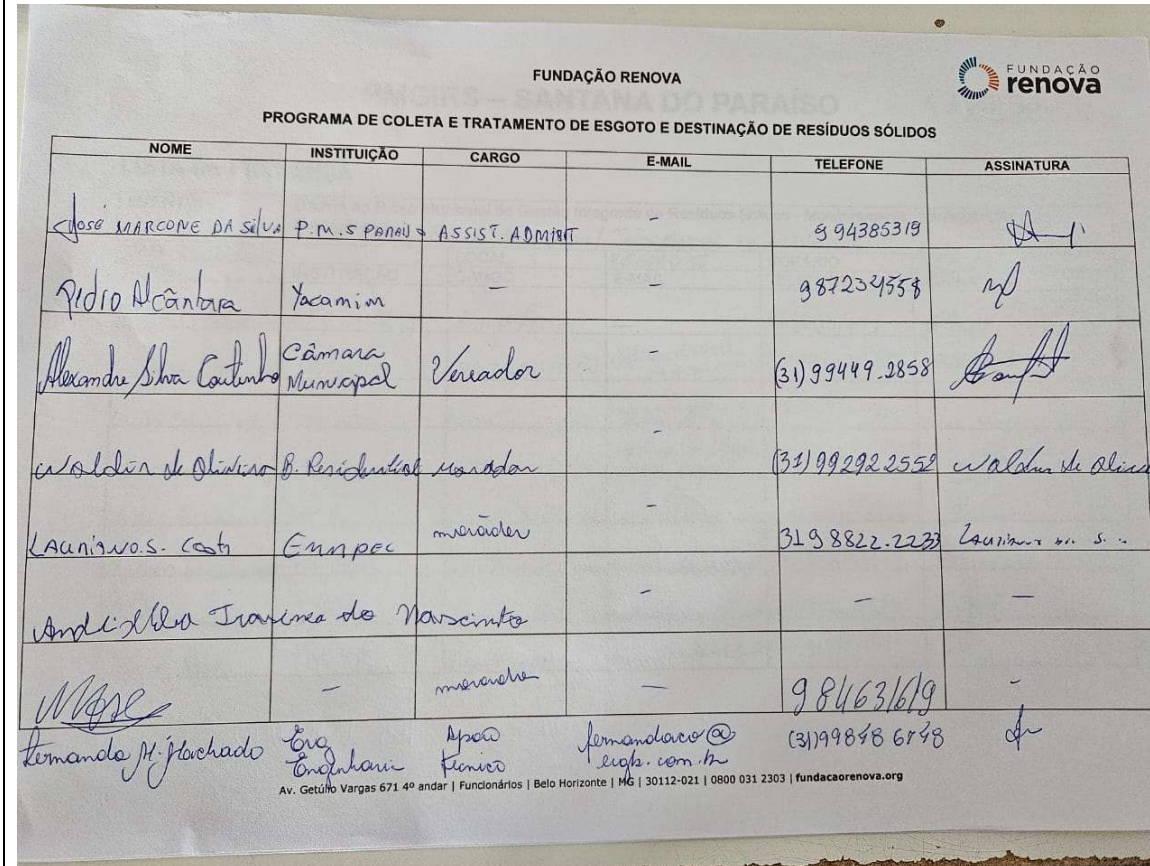 FUNDAÇÃO RENOVA
FUNDAÇÃO
renova
PROGRAMA DE COLETA E TRATAMENTO DE ESGOTO E DESTINAÇÃO DE RESÍDUOS SÓLIDOS
NOME INSTITUIÇÃO CARGO E-MAIL TELEFONE ASSINATURA
José MARCONE DA SILVA P.M.S PARAISO ASSIST. ADMINIST - 994385319
Pedro Alcântara Yacamim - - 987234558
Alexandre Silva Coutinho Câmara Municipal Vereador - (31)99449.2858
de Oliveira B. Residential morador - (31)99292.2552
S. Costa morador - 3198822.2233
do Nascimento - - -
- morador - 984631619 -
Fernanda M. Machado Eng Engenharia Apoio técnico (31)99848 6748
Av. Getúlio Vargas 671 4º andar | Funcionários | Belo Horizonte | MG | 30112-021 | 0800 031 2303 | fundacaorenova.org